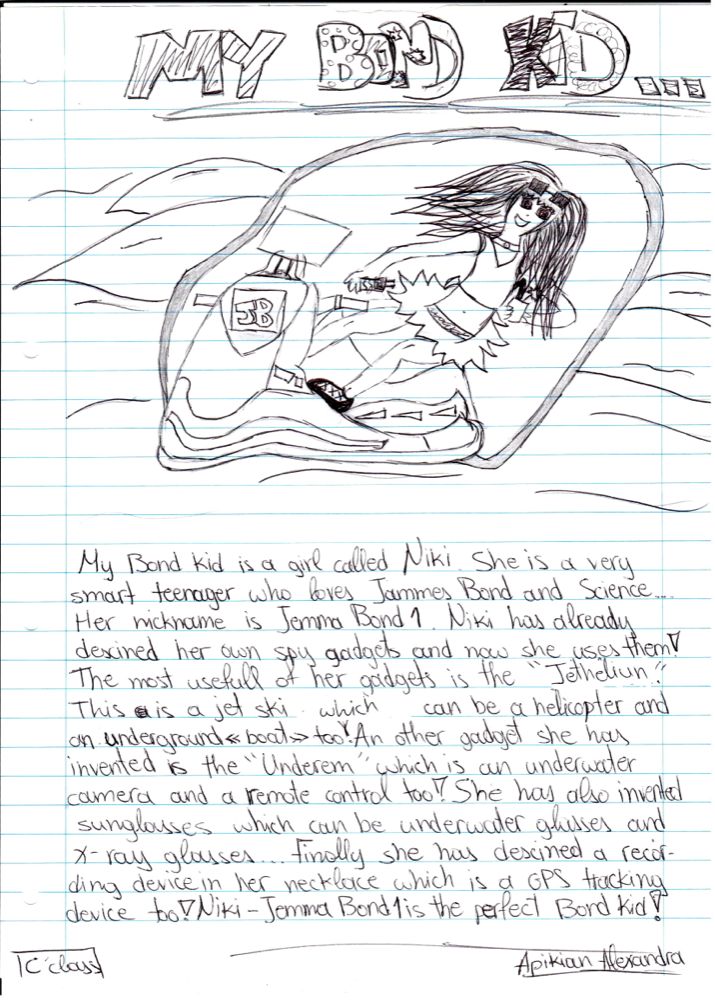 MY BOND KiD...
JB
My Bond kid is a girl called Niki. She is a very
smart teenager who loves Jammes Bond and Science...
Her nickname is Jemma Bond 1. Niki has already
descined her own spy gadgets and now she uses them!
The most usefull of her gadgets is the "Jetheliun".
This is a jet ski which can be a helicopter and
an underground «boat» too! An other gadget she has
invented is the "Underem" which is an underwater
camera and a remote control too! She has also invented
sunglasses which can be underwater glasses and
x-ray glasses... Finally she has descined a recor-
ding device in her necklace which is a GPS tracking
device too! Niki - Jemma Bond 1 is the perfect Bond Kid!
1C' class
Apikian Alexandra